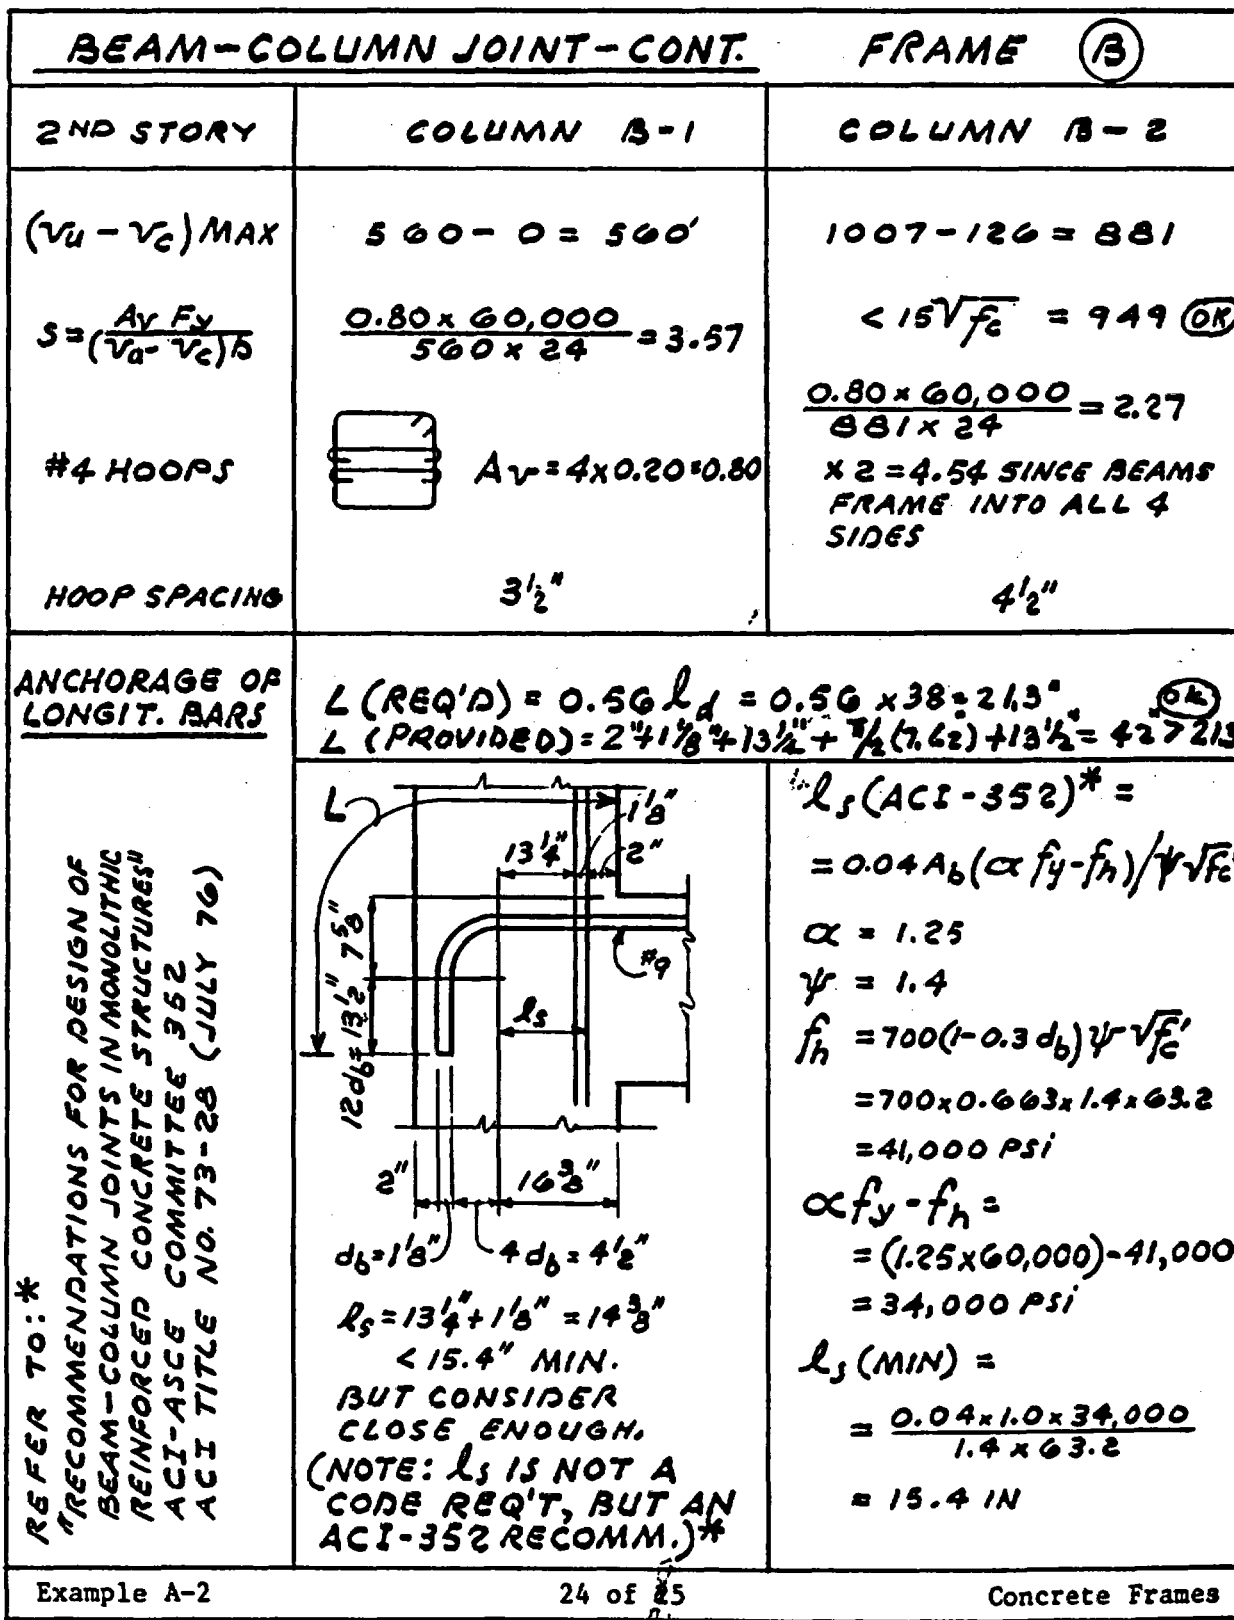 BEAM-COLUMN JOINT-CONT. FRAME (B)
2ND STORY COLUMN B-1 COLUMN B-2
(vu - vc) MAX 560 - 0 = 560' 1007-126 = 881
< 15√fc = 949 OK
s = Av Fy / (va - vc)b 0.80 x 60,000 / 560 x 24 = 3.57
0.80 x 60,000 / 881 x 24 = 2.27
#4 HOOPS Av = 4 x 0.20 = 0.80
x 2 = 4.54 SINCE BEAMS
FRAME INTO ALL 4
SIDES
HOOP SPACING 3 1/2" 4 1/2"
ANCHORAGE OF
LONGIT. BARS
L (REQ'D) = 0.56 ld = 0.56 x 38 = 21.3" OK
L (PROVIDED) = 2"+1 1/8"+13 1/2"+ π/2 (7.62)+13 1/2 = 42" > 21.3
REFER TO:*
"RECOMMENDATIONS FOR DESIGN OF
BEAM-COLUMN JOINTS IN MONOLITHIC
REINFORCED CONCRETE STRUCTURES"
ACI-ASCE COMMITTEE 352
ACI TITLE NO. 73-28 (JULY 76)
L
1 1/8"
13 1/4" 2"
7 5/8"
#9
ls
12db = 13 1/2"
2" 16 3/8"
db = 1 1/8" 4db = 4 1/2"
ls = 13 1/4" + 1 1/8" = 14 3/8"
< 15.4" MIN.
BUT CONSIDER
CLOSE ENOUGH.
(NOTE: ls IS NOT A
CODE REQ'T, BUT AN
ACI-352 RECOMM.)*
ls (ACI-352)* =
= 0.04 Ab (α fy - fh) / ψ √fc'
α = 1.25
ψ = 1.4
fh = 700(1-0.3 db) ψ √fc'
= 700 x 0.663 x 1.4 x 63.2
= 41,000 PSi
α fy - fh =
= (1.25 x 60,000) - 41,000
= 34,000 PSi
ls (MIN) =
= 0.04 x 1.0 x 34,000 / 1.4 x 63.2
= 15.4 IN
Example A-2 24 of 25 Concrete Frames